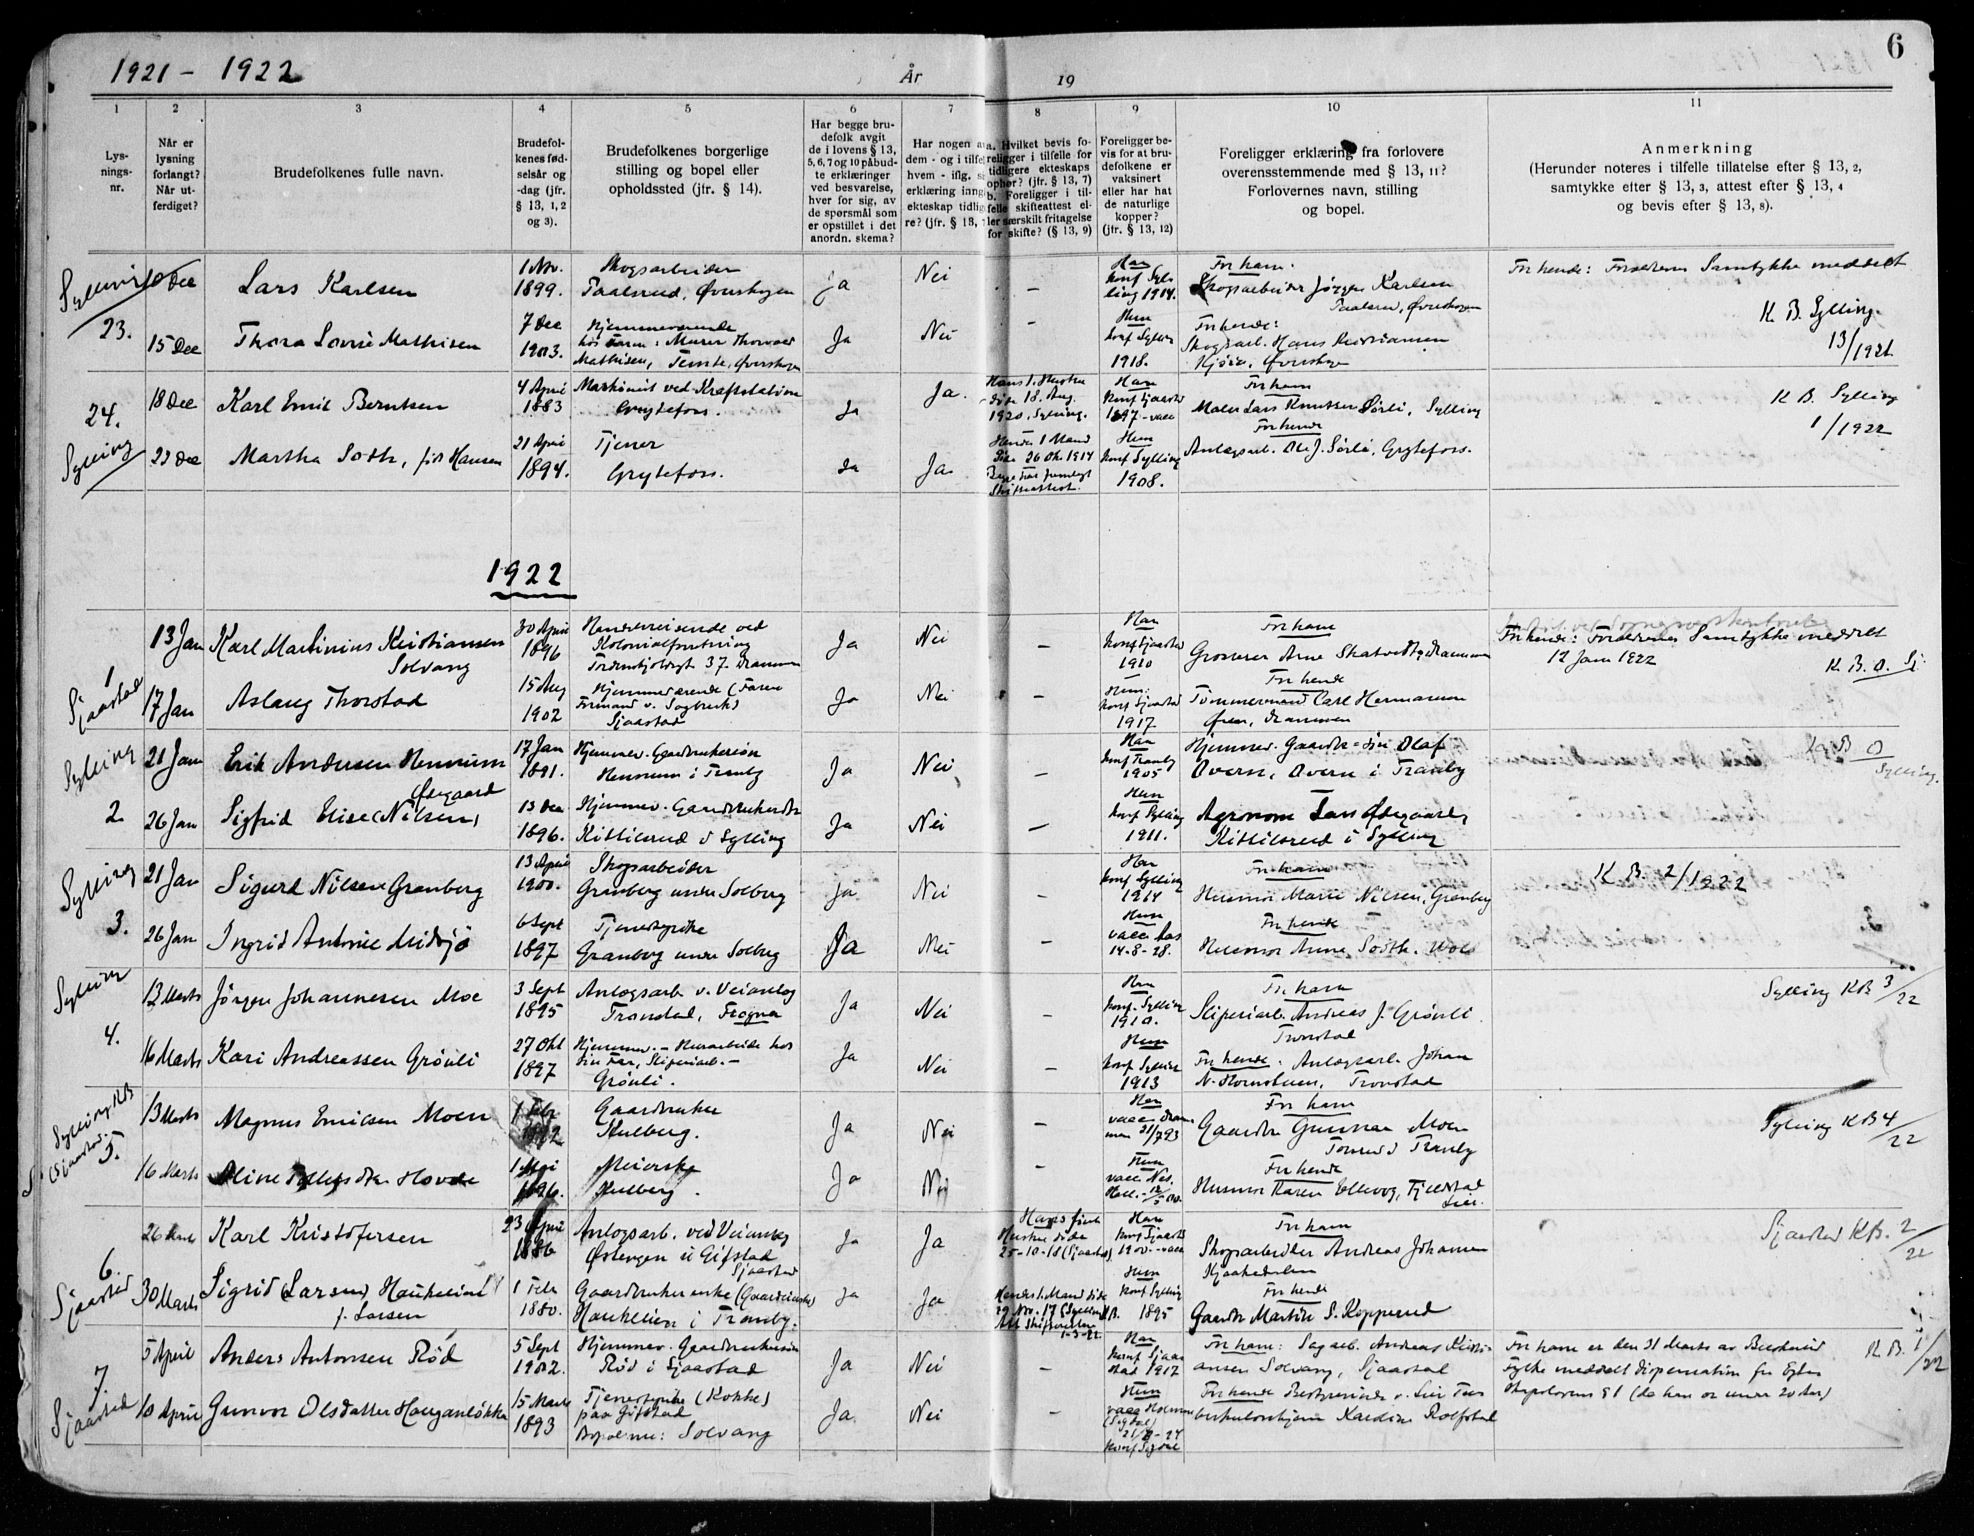 1921 - 1922
År
19
6
1
2
3
4
5
6
7
8
9
10
11
Lys-
nings-
nr.
Når er
lysning
forlangt?
Når ut-
ferdiget?
Brudefolkenes fulle navn.
Brudefol-
kenes fød-
selsår og
-dag (jfr.
§ 13, 1, 2
og 3).
Brudefolkenes borgerlige
stilling og bopel eller
opholdssted (jfr. § 14).
Har begge bru-
defolk avgit
de i lovens § 13,
5, 6, 7 og 10 påbud-
te erklæringer
ved besvarelse,
hver for sig, av
de spørsmål som
er opstillet i det
anordn. skema?
Har nogen a
dem - og i tilfel
hvem - iflg. s
erklæring inng
ekteskap tidlig
re? (jfr. § 13,
a. Hvilket bevis fo-
religger i tilfelle for
tidligere ekteskaps
ophør? (jfr. § 13, 7)
b. Foreligger i til-
felle skifteattest el-
ler særskilt fritagelse
for skifte? (§ 13, 9)
Foreligger be-
vis for at bru-
defolkene er
vaksinert
eller har hat
de naturlige
kopper?
(jfr. § 13, 12)
Foreligger erklæring fra forlovere
overensstemmende med § 13, 11?
Forlovernes navn, stilling
og bopel.
Anmerkning
(Herunder noteres i tilfelle tillatelse efter § 13, 2,
samtykke efter § 13, 3, attest efter § 13, 4
og bevis efter § 13, 8).
Sylling
23.
10 Dec
Lars Karlsen
1 Nov.
1899.
Skogsarbeider
Taalsrud, Øverskogen
Ja
Nei
—
Han
Konf Syl-
ling 1914.
For ham.
Skogsarbeider Jørgen Karlsen
Øverskogen
For hende: Forældrenes Samtykke meddelt
K. B. Sylling
13/1921
15 Dec
Thora Lovise Mathisen
7 Dec
1903.
Hjemmeværende
hos Faren: Murer Thorvald
Mathisen, Øverskogen
Ja
Nei
—
Hun
Konf Sylling
1918.
For hende:
Skogsarb. Hans Kristiansen
Øverskogen
24.
Sylling
18 Dec
Karl Emil Berntsen
4 April
1883
Maskinist ved Kraftstation
Grytefoss.
Ja
Ja.
Hans 1. Hustru
døde 18. Aug.
1920, Sylling.
Han
Konf Sjaastad
1897 - vacc
For ham
Maler Lars Knutsen Sørli, Sylling
K B. Sylling
1/1922
22 Dec
Martha Soth, født Hansen
21 April
1894.
Tjener
Grytefoss.
Ja
Ja.
Hendes 1 Mand
døde 26 Okt. 1914
Skifteattest.
Hun
Konf Sylling
1908.
For hende
Anlægsarb. Ole J. Sørli, Grytefoss.
1922
1
Sjaastad
13 Jan
Karl Martinius Kristiansen
Solvang
30 April
1896
Handelsreisende ved
Kolonialforretning
Tordenskjoldsgt 37 Drammen
Ja
Nei
—
Han
Konf Sjaastad
1910
For ham
Grosserer Arne Skatvedt, Drammen
For hende: Forældrenes Samtykke meddelt
12 Jan 1922
K. B. O. Sj.
17 Jan
Aslaug Thorstad
15 Aug
1902
Hjemmeværende (Faren
Formand v. Sagbruk)
Sjaastad
Ja
Nei
—
Hun.
Konf Sjaastad
1917
For hende
Tømmermand Carl Hermansen
Øren, Drammen
Sylling
2.
21 Jan
Erik Andersen Hennum
17 Jan
1891.
Hjemmev. Gaardbrukersøn
Hennum i Tranby
Ja
Nei
—
Han
Konf Tranby
1905
Hjemmev. Gaardbr-søn Olaf
Overn, Overn i Tranby
K B O
Sylling.
26 Jan
Sigfrid Elise (Nilsen)
Ødegaard
13 Dec
1896.
Hjemmev. Gaardbrukerdtr
Kittilsrud i Sylling
Ja
Nei
—
Hun
Konf Sylling
1911.
Agronom Lars Ødegaard,
Kittilsrud i Sylling
Sylling
3.
21 Jan
Sigurd Nilsen Granberg
13 April
1900.
Skogsarbeider
Granberg under Solberg
Ja
Nei
—
Han
Konf Sylling
1914
For ham
Husmor Marie Nilsen, Granberg
K B. 2/1922
26 Jan
Ingrid Antonie Midsjø
6 Sept
1897
Tjenestepike
Granberg under Solberg
Ja
Nei
—
Hun
vacc
14-8-28.
For hende
Husmor Anne Soth.
Sylling
4.
13 Marts
Jørgen Johannesen Moe
3 Sept
1895
Anlægsarb. v. Veianlæg
Tronstad, Frogner
Ja
Nei
—
Han
Konf. Sylling
1910.
For ham
Sliperiarb. Andreas J. Grønli
Tronstad
Sylling KB 3/22
16 Marts
Kari Andreassen Grønli
27 Okt
1897
Hjemmev. - Husarbeide hos
sin Far, Sliperiarb. -
Grønli.
Ja
Nei
—
Hun
Konf Sylling
1913
For hende. Anlægsarb. Johan
N. Hornstuen, Tronstad
Sylling KB
(Sjaastad.
5.
13 Marts
Magnus Emilsen Moen
1 Febr
Gaardbruker
Hulberg.
Ja
Nei
—
Han
vacc Dram-
men
For ham
Gaardbr Gunnar Moen
Tranby
Sylling KB 4/22
16 Marts
Hovde
1 Mai
1896.
Meierske
Hulberg.
Ja
Nei
—
Hun
vacc Nes,
For hende
Husmor Karen Ellevog, Fjeldstad
Lier.
6.
Sjaastad
26 Marts
Karl Kristofersen
23 April
1886
Anlægsarb. ved Veianlæg
Østengen u Gifstad
Sjaastad
Ja
Ja
Hans første
Hustru døde
25-10-18 (Sjaastad)
Han
Konf Sjaastad
1900. - vacc
For ham
Skogsarbeider Andreas Johansen
Sjaastad KB. 2/22
30 Marts
Sigrid Larsen Haukelien
f. Larsen
1 Febr
1880.
Gaardbrukerenke (Gaardeierske)
Haukelien i Tranby.
Ja
Ja
Hendes 1. Mand døde
29 Nov. 17 (Sylling KB.
Att Skifteretten
1-3-22
Hun
Konf Sylling
1895
For hende
Gaardbr Martin S. Kopperud
7.
Sjaastad
5 April
Anders Antonsen Rød
5 Sept
1902.
Hjemmev. Gaardbrukersøn
Rød i Sjaastad
Ja
Nei
—
Han
Konf Sjaa-
stad 1917
For ham: Sagarb. Andreas Kristi-
ansen Solvang, Sjaastad
For ham er den 31 Marts av Buskerud
Fylke meddelt dispensation fra Egte-
skapslovens § 1 (da han er under 20 Aar)
K B. 1/22
10 April
Gunvor Olsdatter Hauganløkka
15 Marts
1893
Tjenestepike (Kokke)
paa Gifstad
Bopæl nu: Solvang
Ja.
Nei
—
Hun
vacc Holmen
(Sigdal)
Konf Sigdal
For hende Bestyrerinde v. Lier Tu-
berkulosehjem Karoline Rolfstad